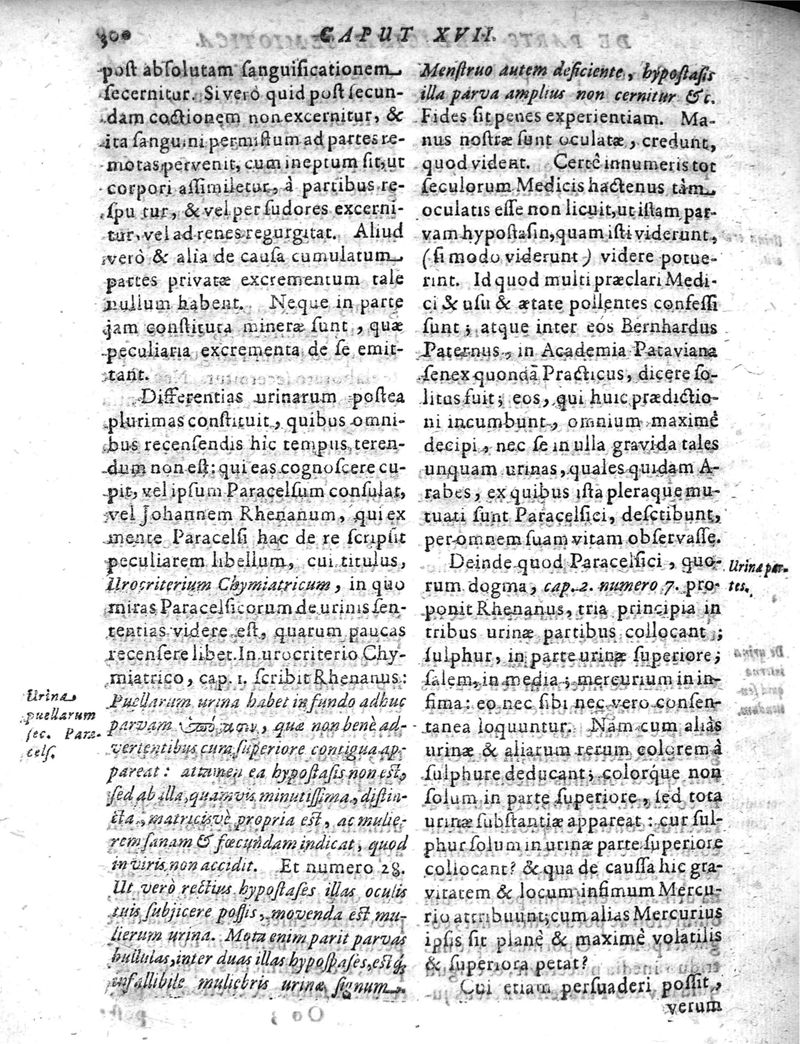 300 CAPUT XVII.
post absolutam sanguificationem
secernitur. Si verò quid post secun-
dam coctionem non excernitur, &
ita sanguini permistum ad partes re-
motas pervenit, cum ineptum sit, ut
corpori assimiletur, à partibus re-
spu tur, & vel per sudores excerni-
tur, vel ad renes regurgitat. Aliud
verò & alia de causa cumulatum
partes privatæ excrementum tale
nullum habent. Neque in parte
jam constituta mineræ sunt, quæ
peculiaria excrementa de se emit-
tant.
Differentias urinarum postea
plurimas constituit, quibus omni-
bus recensendis hic tempus teren-
dum non est: qui eas cognoscere cu-
pit, vel ipsum Paracelsum consulat,
vel Johannem Rhenanum, qui ex
mente Paracelsi hac de re scripsit
peculiarem libellum, cui titulus,
Urocriterium Chymiatricum, in quo
miras Paracelsicorum de urinis sen-
tentias videre est, quarum paucas
recensere libet. In urocriterio Chy-
miatrico, cap. 1. scribit Rhenanus:
Urina
puellarum
sec. Para-
cels.
Puellarum urina habet in fundo adhuc
parvam ὑπόστασιν, quæ non benè ad-
vertentibus cum superiore contigua ap-
pareat: attamen ea hypostasis non est,
sed ab illa, quamvis minutissima, distin-
cta, matricisvè propria est, ac mulie-
rem sanam & fœcundam indicat, quod
in viris non accidit. Et numero 28.
Ut verò rectius hypostases illas oculis
tuis subjicere possis, movenda est mu-
lierum urina. Mota enim parit parvas
bullulas, inter duas illas hypostases, estq́;
infallibile muliebris urinæ signum.
Menstruo autem deficiente, hypostasis
illa parva amplius non cernitur &c.
Fides sit penes experientiam. Ma-
nus nostræ sunt oculatæ, credunt,
quod vident. Certè innumeris tot
seculorum Medicis hactenus tàm
oculatis esse non licuit, ut istam par-
vam hypostasin, quam isti viderunt,
(si modo viderunt) videre potue-
rint. Id quod multi præclari Medi-
ci & usu & ætate pollentes confessi
sunt; atque inter eos Bernhardus
Paternus, in Academia Pataviana
senex quondã Practicus, dicere so-
litus fuit; eos, qui huic prædictio-
ni incumbunt, omnium maximè
decipi, nec se in ulla gravida tales
unquam urinas, quales quidam A-
rabes, ex quibus ista pleraque mu-
tuati sunt Paracelsici, desctibunt,
per omnem suam vitam observasse.
Deinde quod Paracelsici, quo-
rum dogma, cap. 2. numero 7. pro-
ponit Rhenanus, tria principia in
tribus urinæ partibus collocant;
sulphur, in parte urinæ superiore;
salem, in media; mercurium in in-
fima: eo nec sibi nec vero consen-
tanea loquuntur. Nàm cum aliàs
urinæ & aliarum rerum colorem à
sulphure deducant; colorq́ue non
solum in parte superiore, sed tota
urinæ substantiæ appareat: cur sul-
phur solum in urinæ parte superiore
collocant? & qua de caussa hic gra-
vitatem & locum infimum Mercu-
rio attribuunt; cum alias Mercurius
ipsis sit planè & maximè volatilis
& superiora petat?
Cui etiam persuaderi possit,
verum
Urinæ par-
tes.